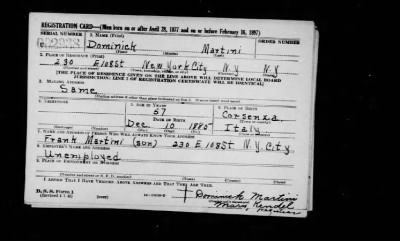 REGISTRATION CARD—(Men born on or after April 28, 1877 and on or before February 16, 1897)
SERIAL NUMBER 1. NAME (Print) ORDER NUMBER
Dominick Martini
(First) (Middle) (Last)
2. PLACE OF RESIDENCE (Print)
230 E 108 St New York City N.Y N.Y
[THE PLACE OF RESIDENCE GIVEN ON THE LINE ABOVE WILL DETERMINE LOCAL BOARD
JURISDICTION; LINE 2 OF REGISTRATION CERTIFICATE WILL BE IDENTICAL]
3. MAILING ADDRESS
Same
4. TELEPHONE 5. AGE IN YEARS 6. PLACE OF BIRTH
57 Corsenza
DATE OF BIRTH
Dec 10 1885 Italy
7. NAME AND ADDRESS OF PERSON WHO WILL ALWAYS KNOW YOUR ADDRESS
Frank Martini (son) 230 E 108 St N.Y. City
8. EMPLOYER'S NAME AND ADDRESS
Unemployed
9. PLACE OF EMPLOYMENT OR BUSINESS
I AFFIRM THAT I HAVE VERIFIED ABOVE ANSWERS AND THAT THEY ARE TRUE.
D. S. S. Form 1
Dominick Martini